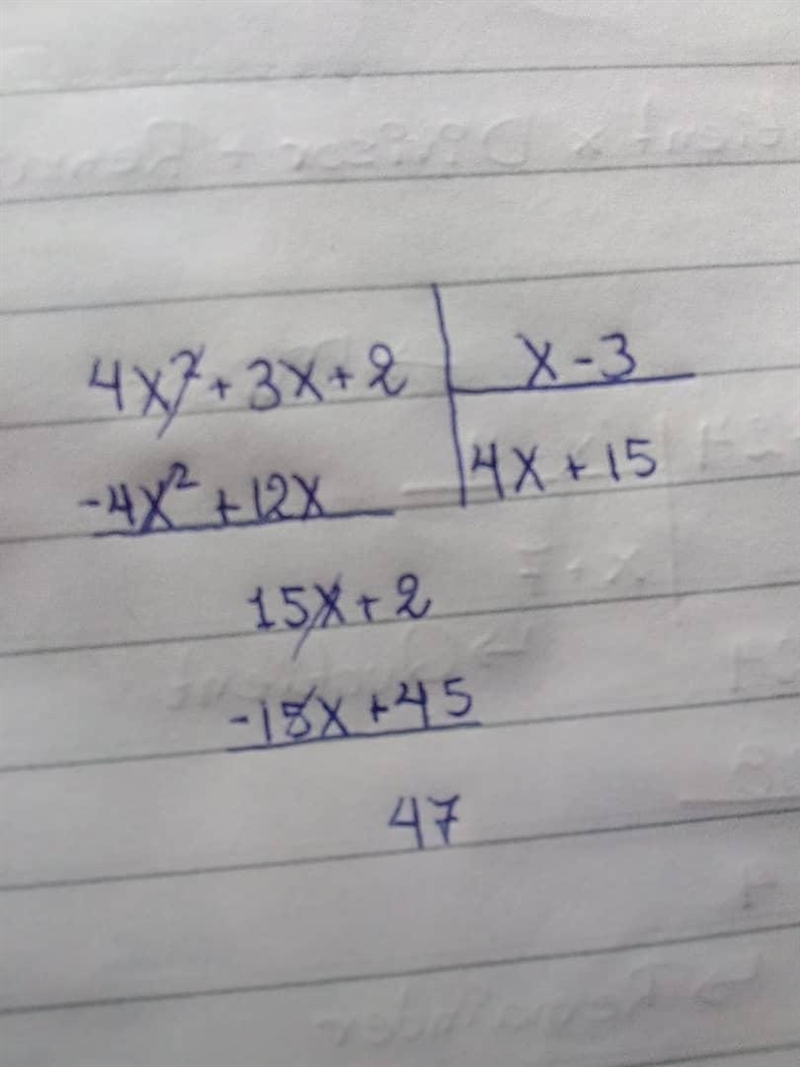 4x² + 3x + 2 | x - 3
-4x² + 12x | 4x + 15
15x + 2
-18x + 45
47